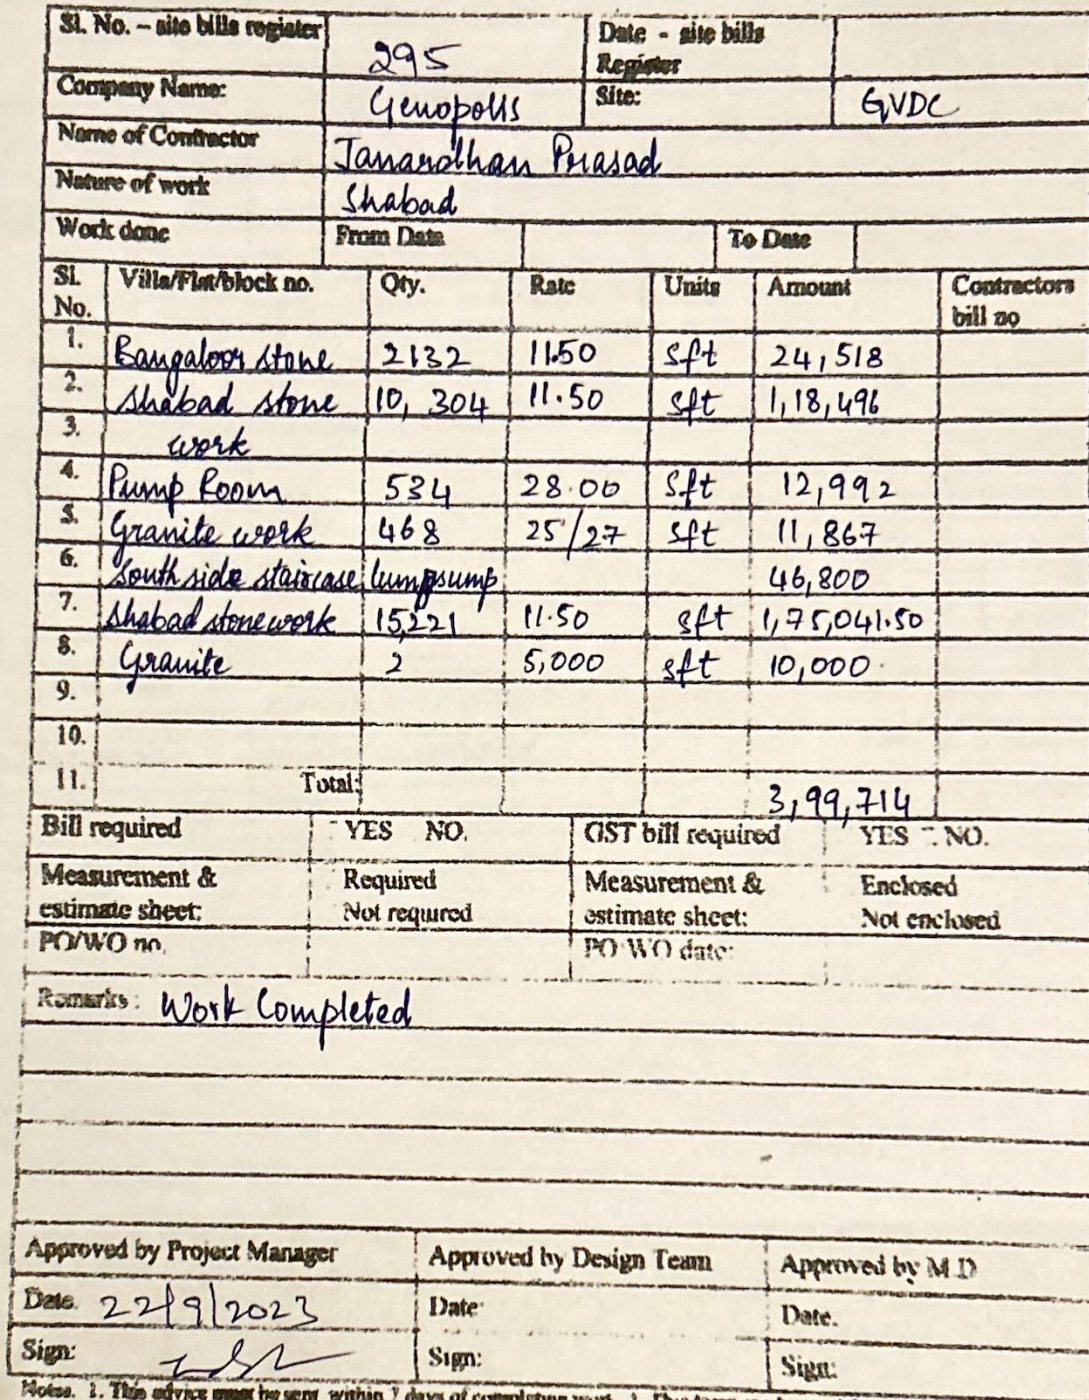 Sl. No. – site bills register 295 Date - site bills Register
Company Name: Genopolis Site: GVDC
Name of Contractor Janardhan Prasad
Nature of work Shabad
Work done From Date To Date
Sl. No. Villa/Flat/block no. Qty. Rate Units Amount Contractors bill no
1. Bangaloor stone 2132 11.50 sft 24,518
2. Shabad stone 10, 304 11.50 sft 1,18,496
3. work
4. Pump Room 534 28.00 sft 12,992
5. Granite work 468 25/27 sft 11,867
6. South side staircase lumpsump 46,800
7. Shabad stonework 15,221 11.50 sft 1,75,041.50
8. Granite 2 5,000 sft 10,000
9.
10.
11. Total: 3,99,714
Bill required YES NO. GST bill required YES NO.
Measurement & estimate sheet: Required Not required Measurement & estimate sheet: Enclosed Not enclosed
PO/WO no. PO WO date:
Remarks: Work Completed
Approved by Project Manager Approved by Design Team Approved by M D
Date. 22/9/2023 Date: Date.
Sign: Sign: Sign:
Notes. 1. This advice must be sent within 7 days of